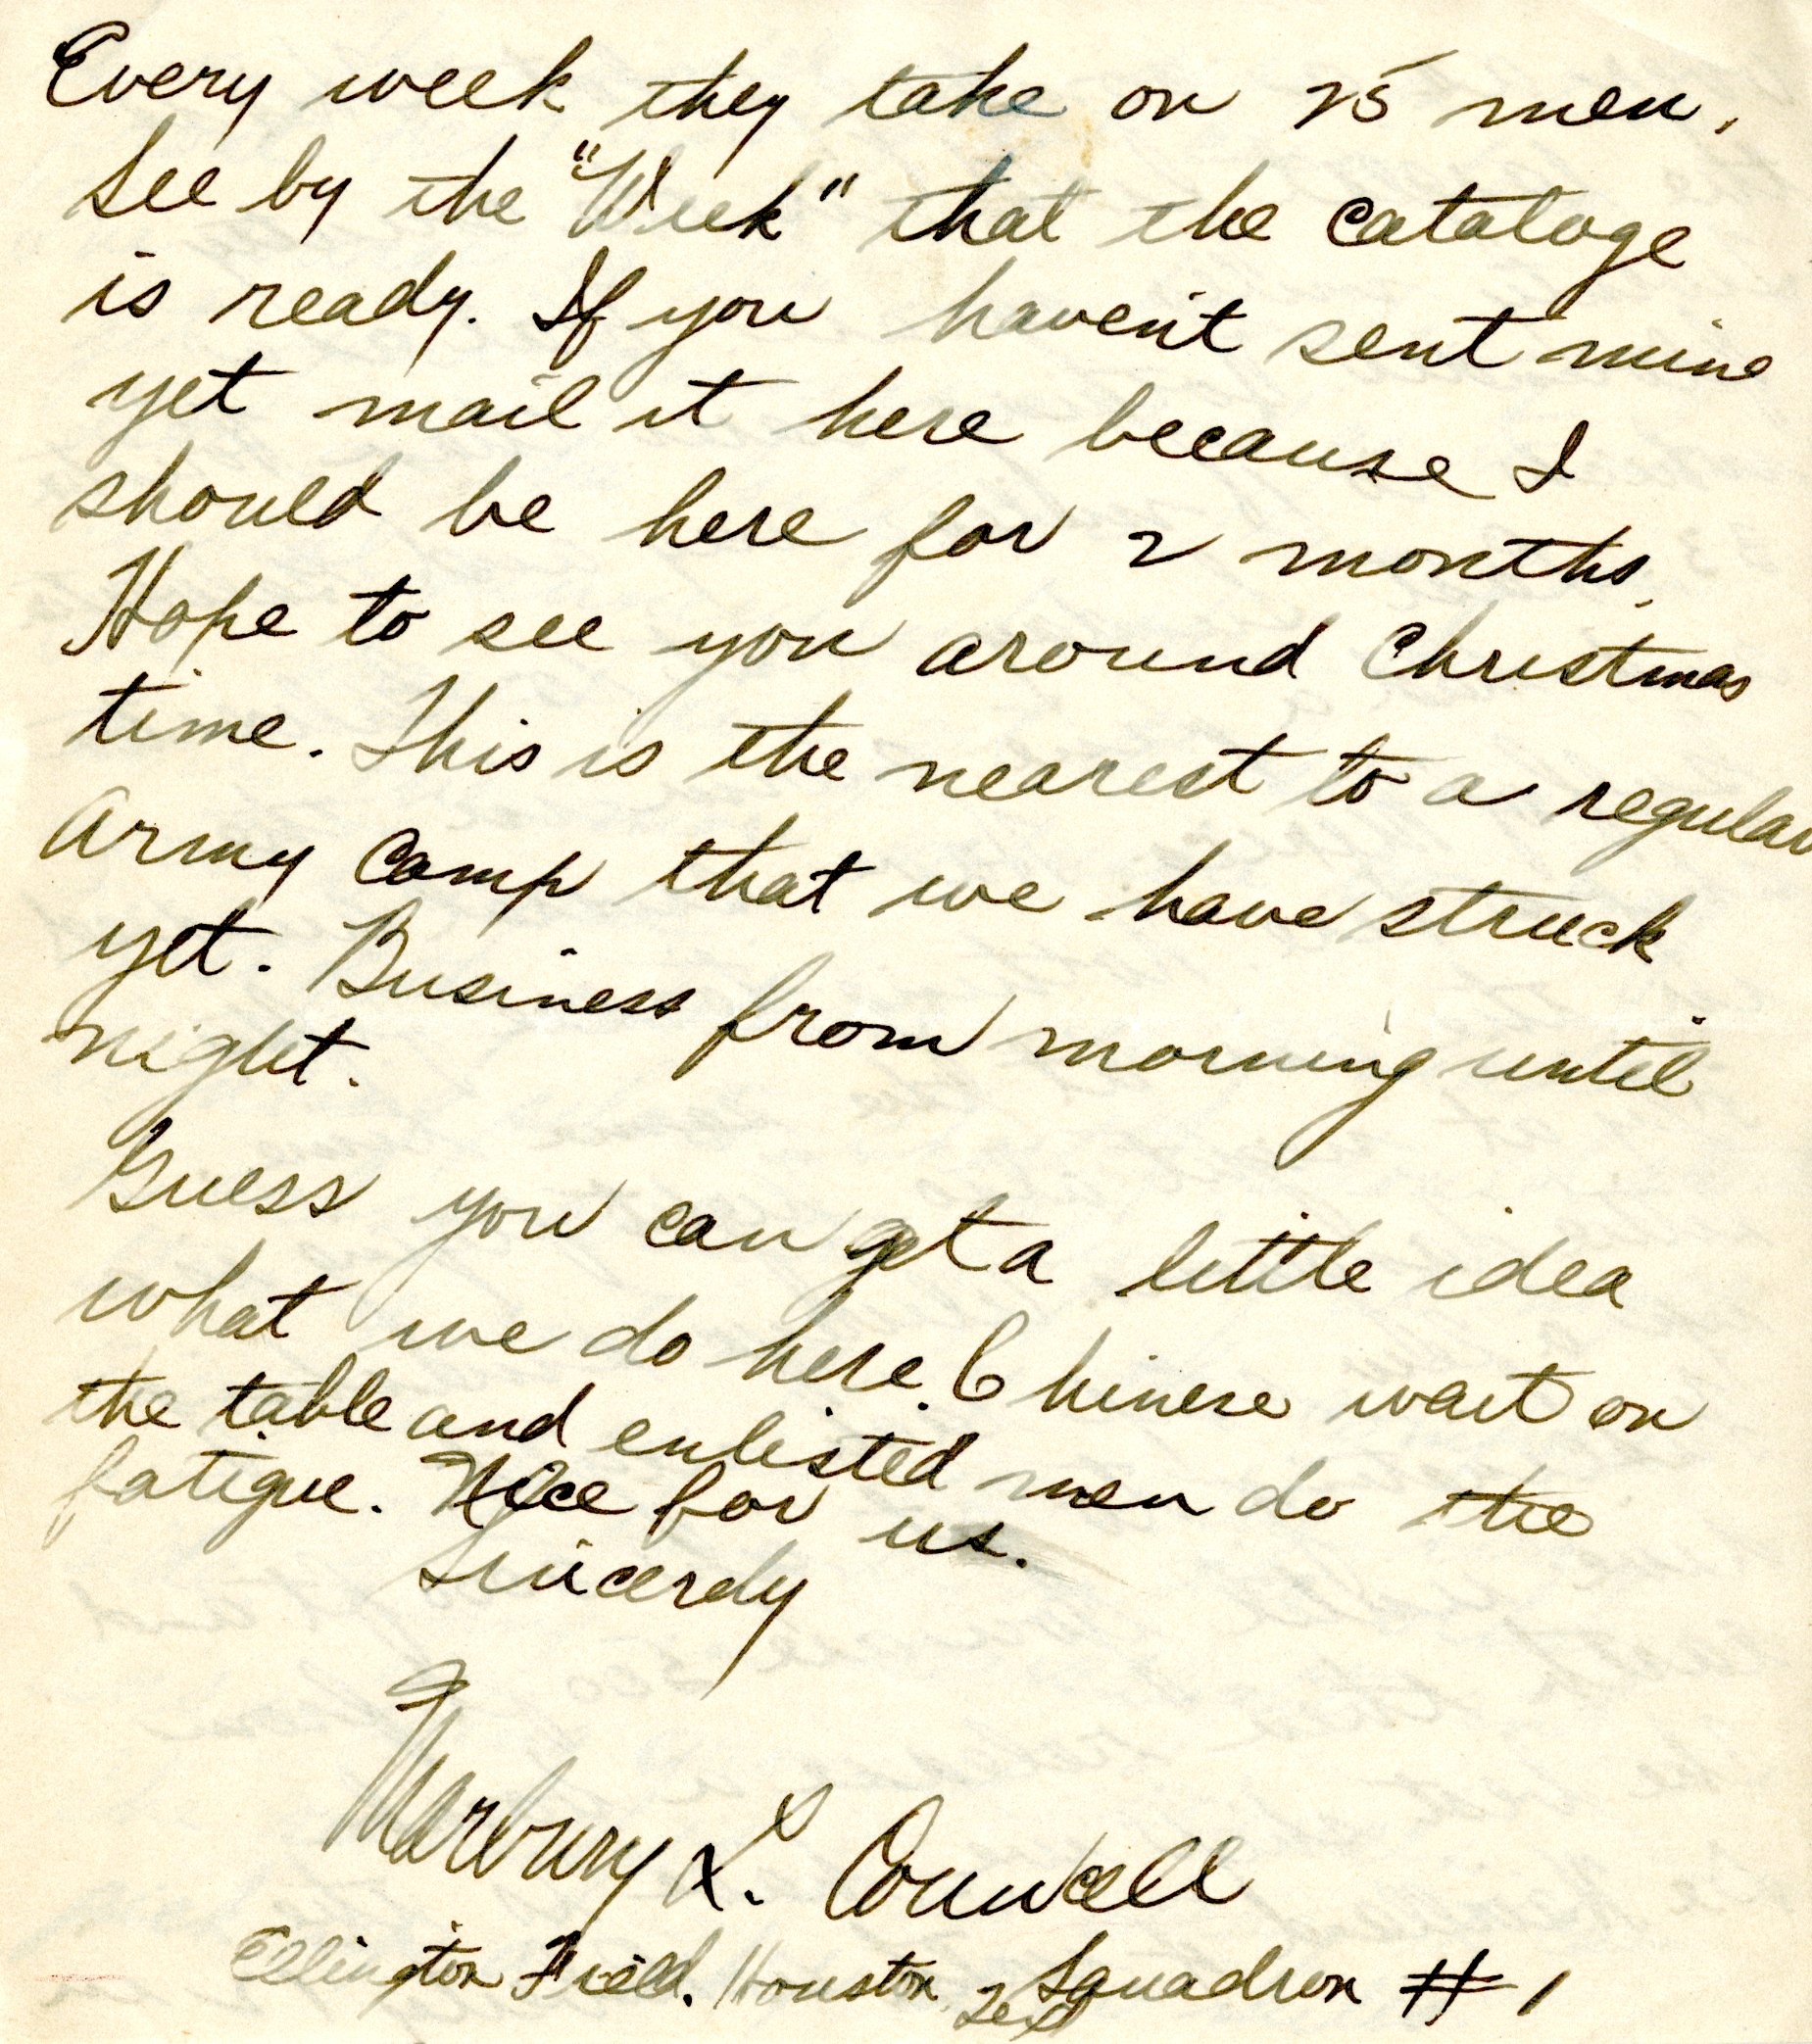 Every week they take on 25 men.
See by the "Week" that the cataloge
is ready. If you haven't sent mine
yet mail it here because I
should be here for 2 months.
Hope to see you around Christmas
time. This is the nearest to a regular
Army Camp that we have struck
yet. Business from morning until
night.
Guess you can get a little idea
what we do here. Chinese wait on
the table and enlisted men do the
fatigue. Nice for us.
Sincerely
Marbury L. Councell
Ellington Field. Houston, Tex Squadron # 1